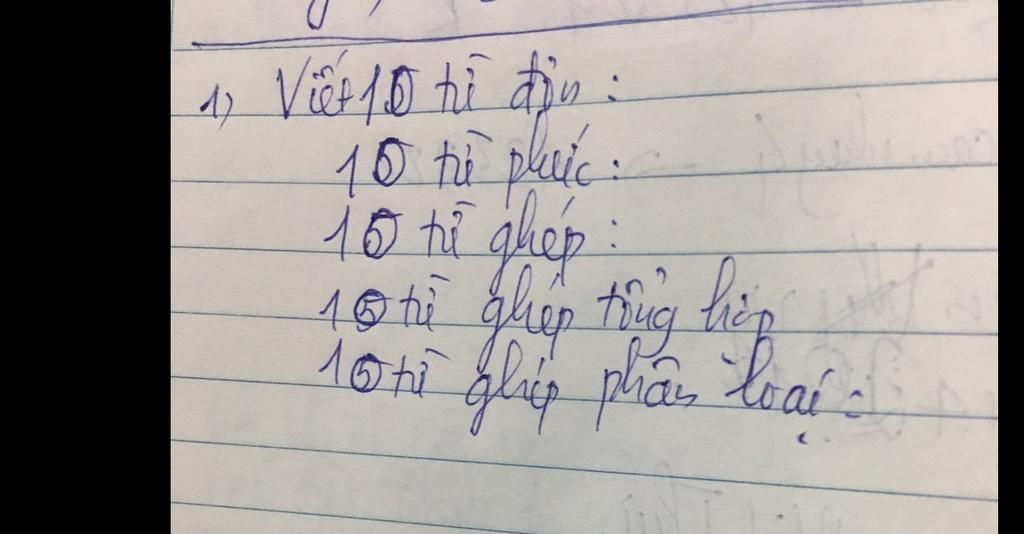 1) Viết 10 từ đơn :
10 từ phức :
10 từ ghép :
10 từ ghép tổng hợp
10 từ ghép phân loại :